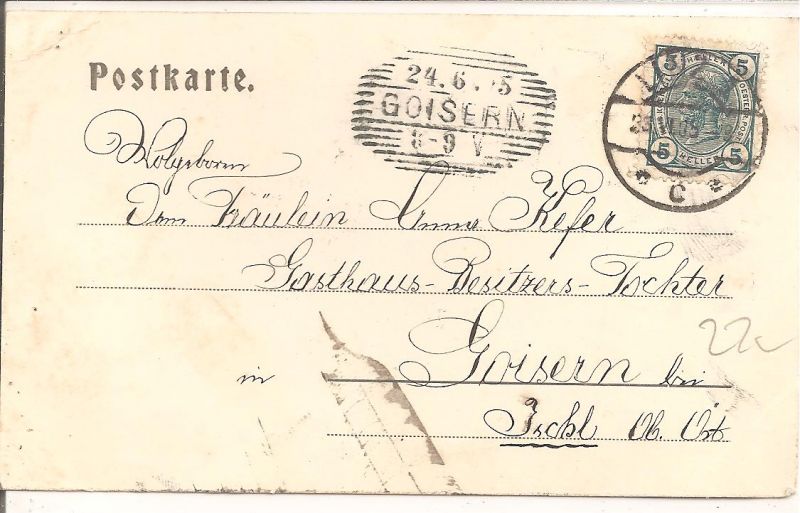 Postkarte.
24.6. 5
GOISERN
8-9 V
5 HELLER 5
5 HELLER 5
C
Wolgeboren
Dem Fräulein Anna Kefer
Gasthaus-Besitzers-Tochter
22
in Goisern bei
Ischl Ob. Öst.